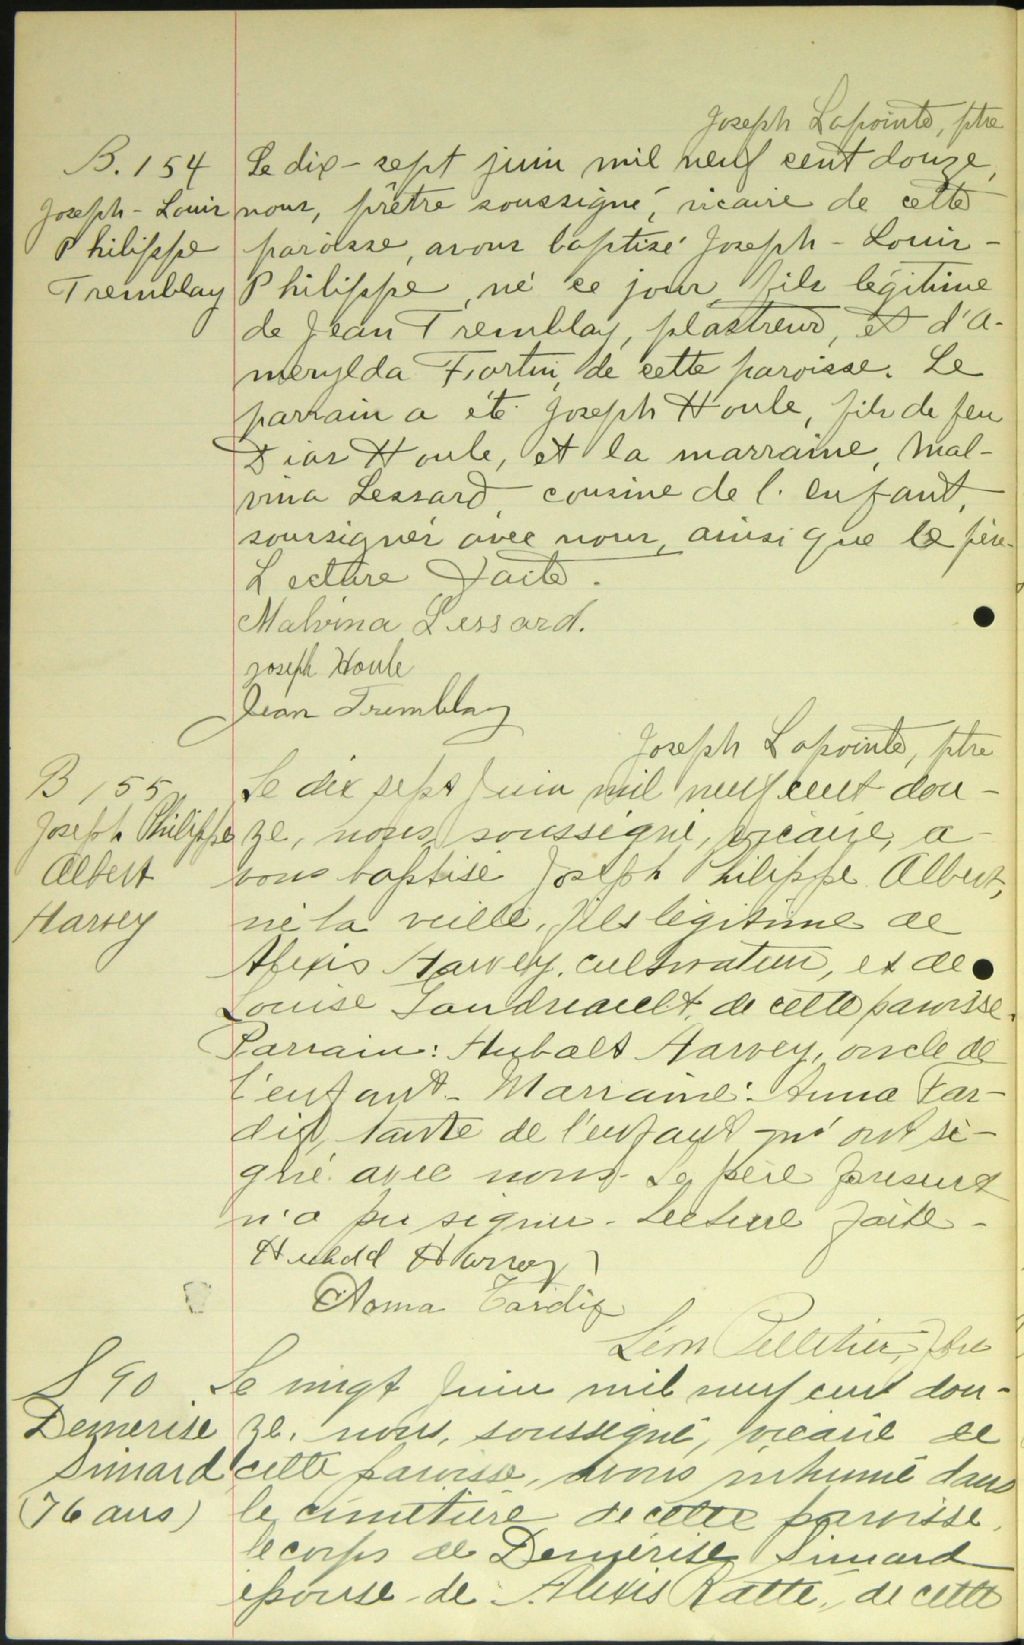 Joseph Lapointe, ptre
B. 154
Joseph-Louis
Philippe
Tremblay
Le dix-sept juin mil neuf cent douze,
nous, prêtre soussigné, vicaire de cette
paroisse, avons baptisé Joseph-Louis-
Philippe, né ce jour, fils légitime
de Jean Tremblay, plastreur, et d'A-
merylda Fortin, de cette paroisse. Le
parrain a été Joseph Houle, fils de feu
Houle, et la marraine, Mal-
vina Lessard, cousine de l'enfant,
soussignés avec nous, ainsi que le père.
Lecture faite.
Malvina Lessard.
Joseph Houle
Jean Tremblay
Joseph Lapointe, ptre
B 155
Joseph Philippe
Albert
Harvey
Le dix sept juin mil neuf cent dou-
ze, nous, soussigné, vicaire, a-
vons baptisé Joseph Philippe Albert,
né la veille, fils légitime de
Alexis Harvey, cultivateur, et de
Louise Gaudreault, de cette paroisse.
Parrain: Harvey, oncle de
l'enfant - Marraine: Anna Tar-
dif, tante de l'enfant qui ont si-
gné avec nous. Le père présent
n'a pu signer - Lecture faite -
Harvey
Tardif
Léon Pelletier, ptre
S 90
Demerise
Simard
(76 ans)
Le vingt juin mil neuf cent dou-
ze, nous, soussigné, vicaire de
cette paroisse, avons inhumé dans
le cimetière de cette paroisse,
le corps de Demerise Simard
épouse de Alexis Ratté, de cette